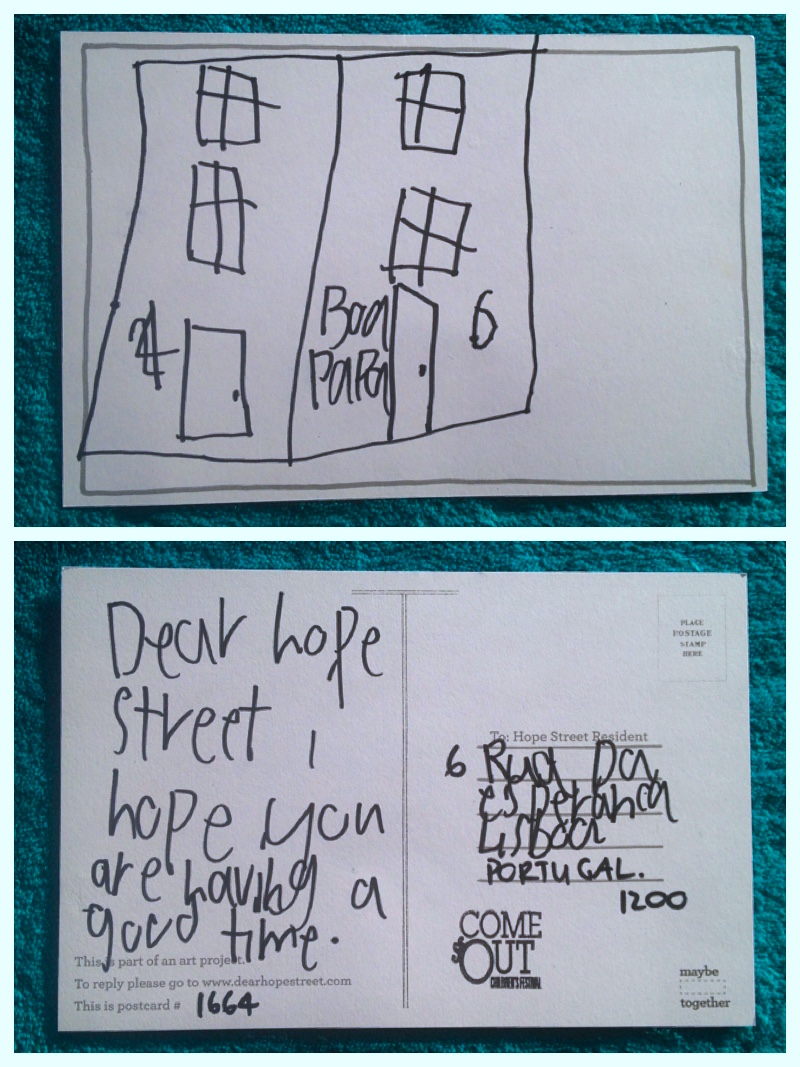 4
Boa
Papa
6
Dear hope
street i
hope you
are having a
good time.
This is part of an art project.
To reply please go to www.dearhopestreet.com
This is postcard # 1664
PLACE
POSTAGE
STAMP
HERE
To: Hope Street Resident
6 Rua Da
esperanca
Lisboa
PORTUGAL.
1200
COME
OUT
CHILDREN'S FESTIVAL
maybe
together